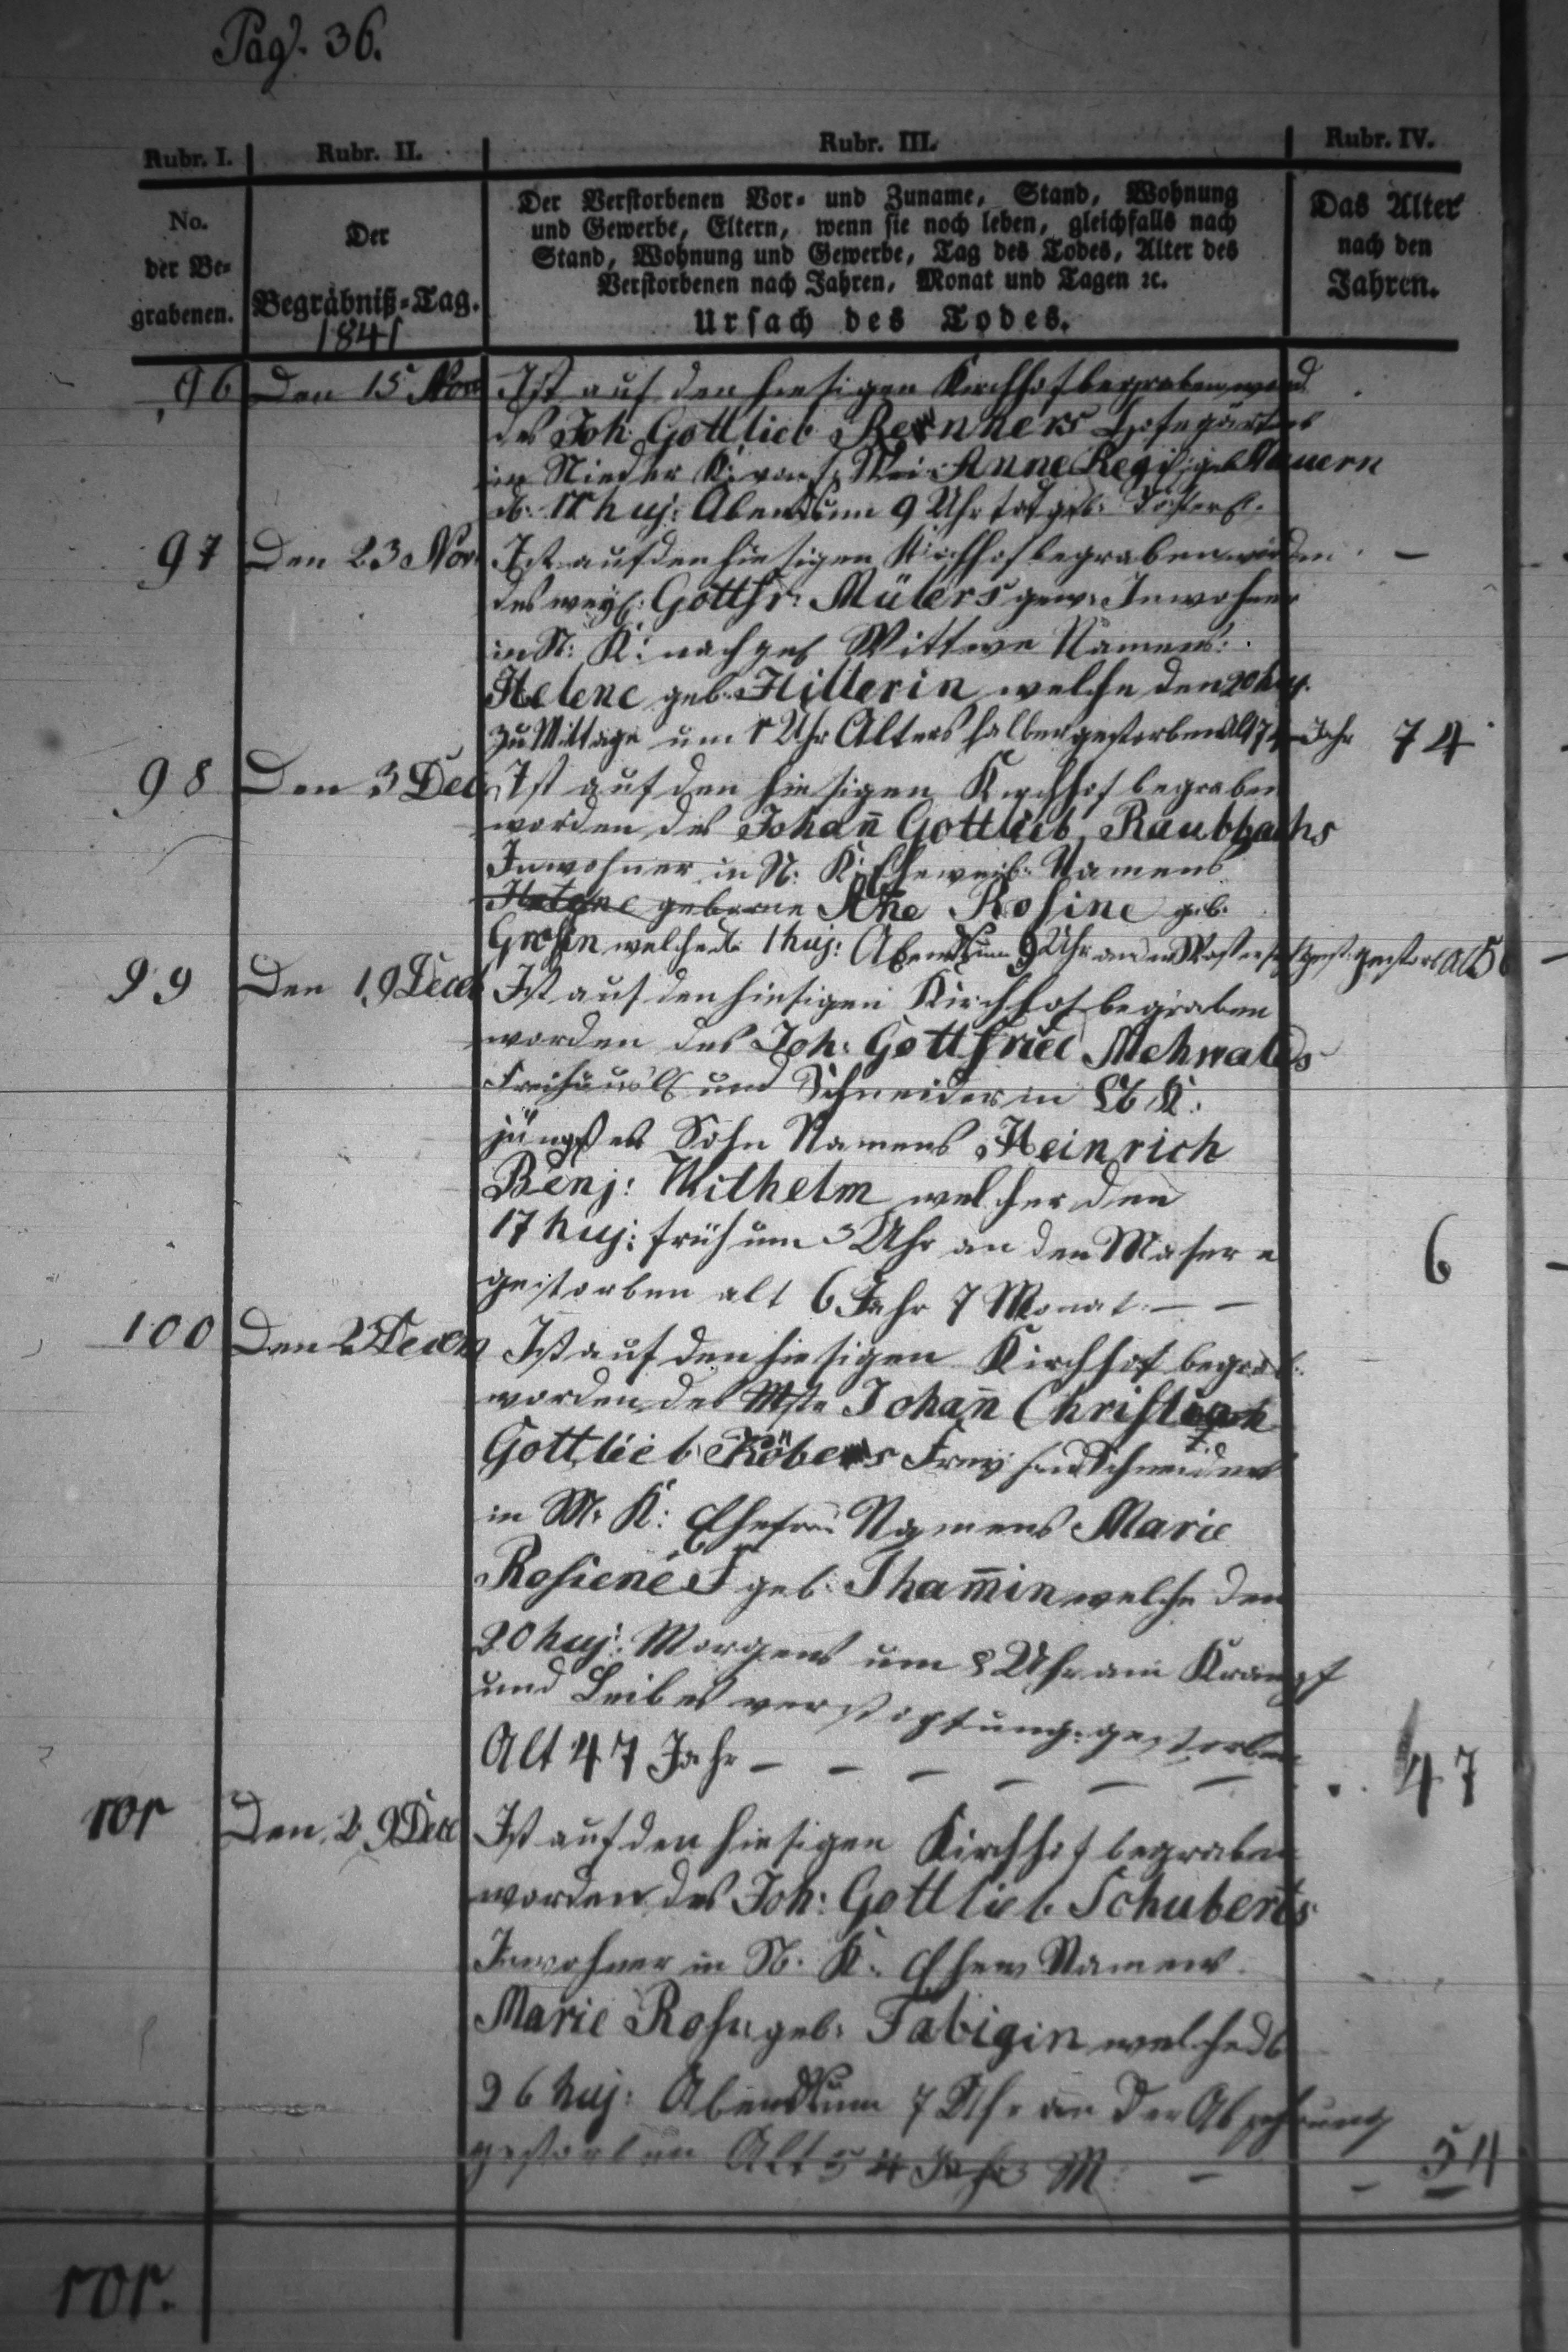 Pag. 36.
Rubr. I. Rubr. II. Rubr. III. Rubr. IV.
No. der Be-grabenen.
Der Begräbniß-Tag.
1841
Der Verstorbenen Vor- und Zuname, Stand, Wohnung
und Gewerbe, Eltern, wenn sie noch leben, gleichfalls nach
Stand, Wohnung und Gewerbe, Tag des Todes, Alter des
Verstorbenen nach Jahren, Monat und Tagen ꝛc.
Ursach des Todes.
Das Alter
nach den
Jahren.
96 Den 15 Nov Ist auf den hiesigen Kirchhof begraben word
des Joh. Gottlieb Renners Hofegärtner
in Nieder K: von s. Anne Regi: geb.
huj: Abends um 9 Uhr todtgeb: Töchterl.
97 Den 23 Nov. Ist auf den hiesigen Kirchhof begraben worden. —
des weyl: Gottfr: Mülers gew: Inwohner
in N: K: nachgel Wittwe Namens:
Helene geb. Hillerin welche den 20 huj.
zu Mittage um 1 Uhr Alters halber gestorben alt 74 Jahr 74
98 Den 3 Dec Ist auf den hiesigen Kirchhof begraben
worden des Johan̄ Gottlieb Raubbachs
Inwohner in N: K: Eheweib Namens
Helene geborne Ane Rosine geb.
Grosin welche d. 1 huj: Abends um 9 Uhr an gestorb alt 5
99 Den 19 Decb Ist auf den hiesigen Kirchhof begraben
worden des Joh: Gottfried Mehwalds
Freihäusl und Schneider in K:
jüngster Sohn Namens Heinrich
Benj: Wilhelm welcher den
17 huj: früh um 3 Uhr an den Masern
gestorben alt 6 Jahr 7 Monat. — — 6
100 Den 23 Decb Ist auf den hiesigen Kirchhof begrab:
worden des Mstr Johan̄ Christoph
Gottlieb Köbers Frey Schneider
in M. K: Ehefrau Namens Marie
Rosiene geb. Tham̄in welche den
20 huj: Morgens um 8 Uhr am Krampf
und Leibes verstopfung: gestorben
Alt 47 Jahr — — — — — — 47
101 Den 29 Dec Ist auf den hiesigen Kirchhof begraben
worden des Joh: Gottlieb Schuberts
Inwohner in N. K. Ehew Namens
Marie Ros: geb: Fabigin welche d.
26 huj: Abends um 7 Uhr an der Abzehrung
gestorben Alt 54 Jahr M: — — 54
101.